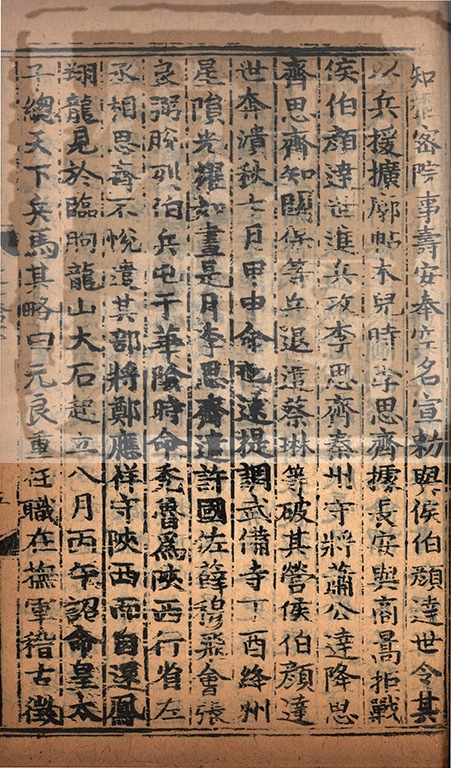 知樞密院事壽安奉空名宣勑與侯伯顔達世令其
以兵援擴廓帖木兒時李思齊據長安與商暠拒戰
侯伯顔達世進兵攻李思齊秦州守將蕭公達降思
齊思齊知關保等兵退遣蔡琳等破其營侯伯顔達
世奔潰秋七月甲申命也速提調武備寺丁酉絳州
星隕光耀如晝是月李思齊遣許國佐薛穆飛會張
良弼脫列伯兵屯于華陰時命禿魯爲陝西行省左
丞相思齊不悅遣其部將鄭應祥守陝西而自還鳳
翔龍見於臨朐龍山大石起立八月丙午詔命皇太
子總天下兵馬其略曰元良重任職在撫軍稽古徵